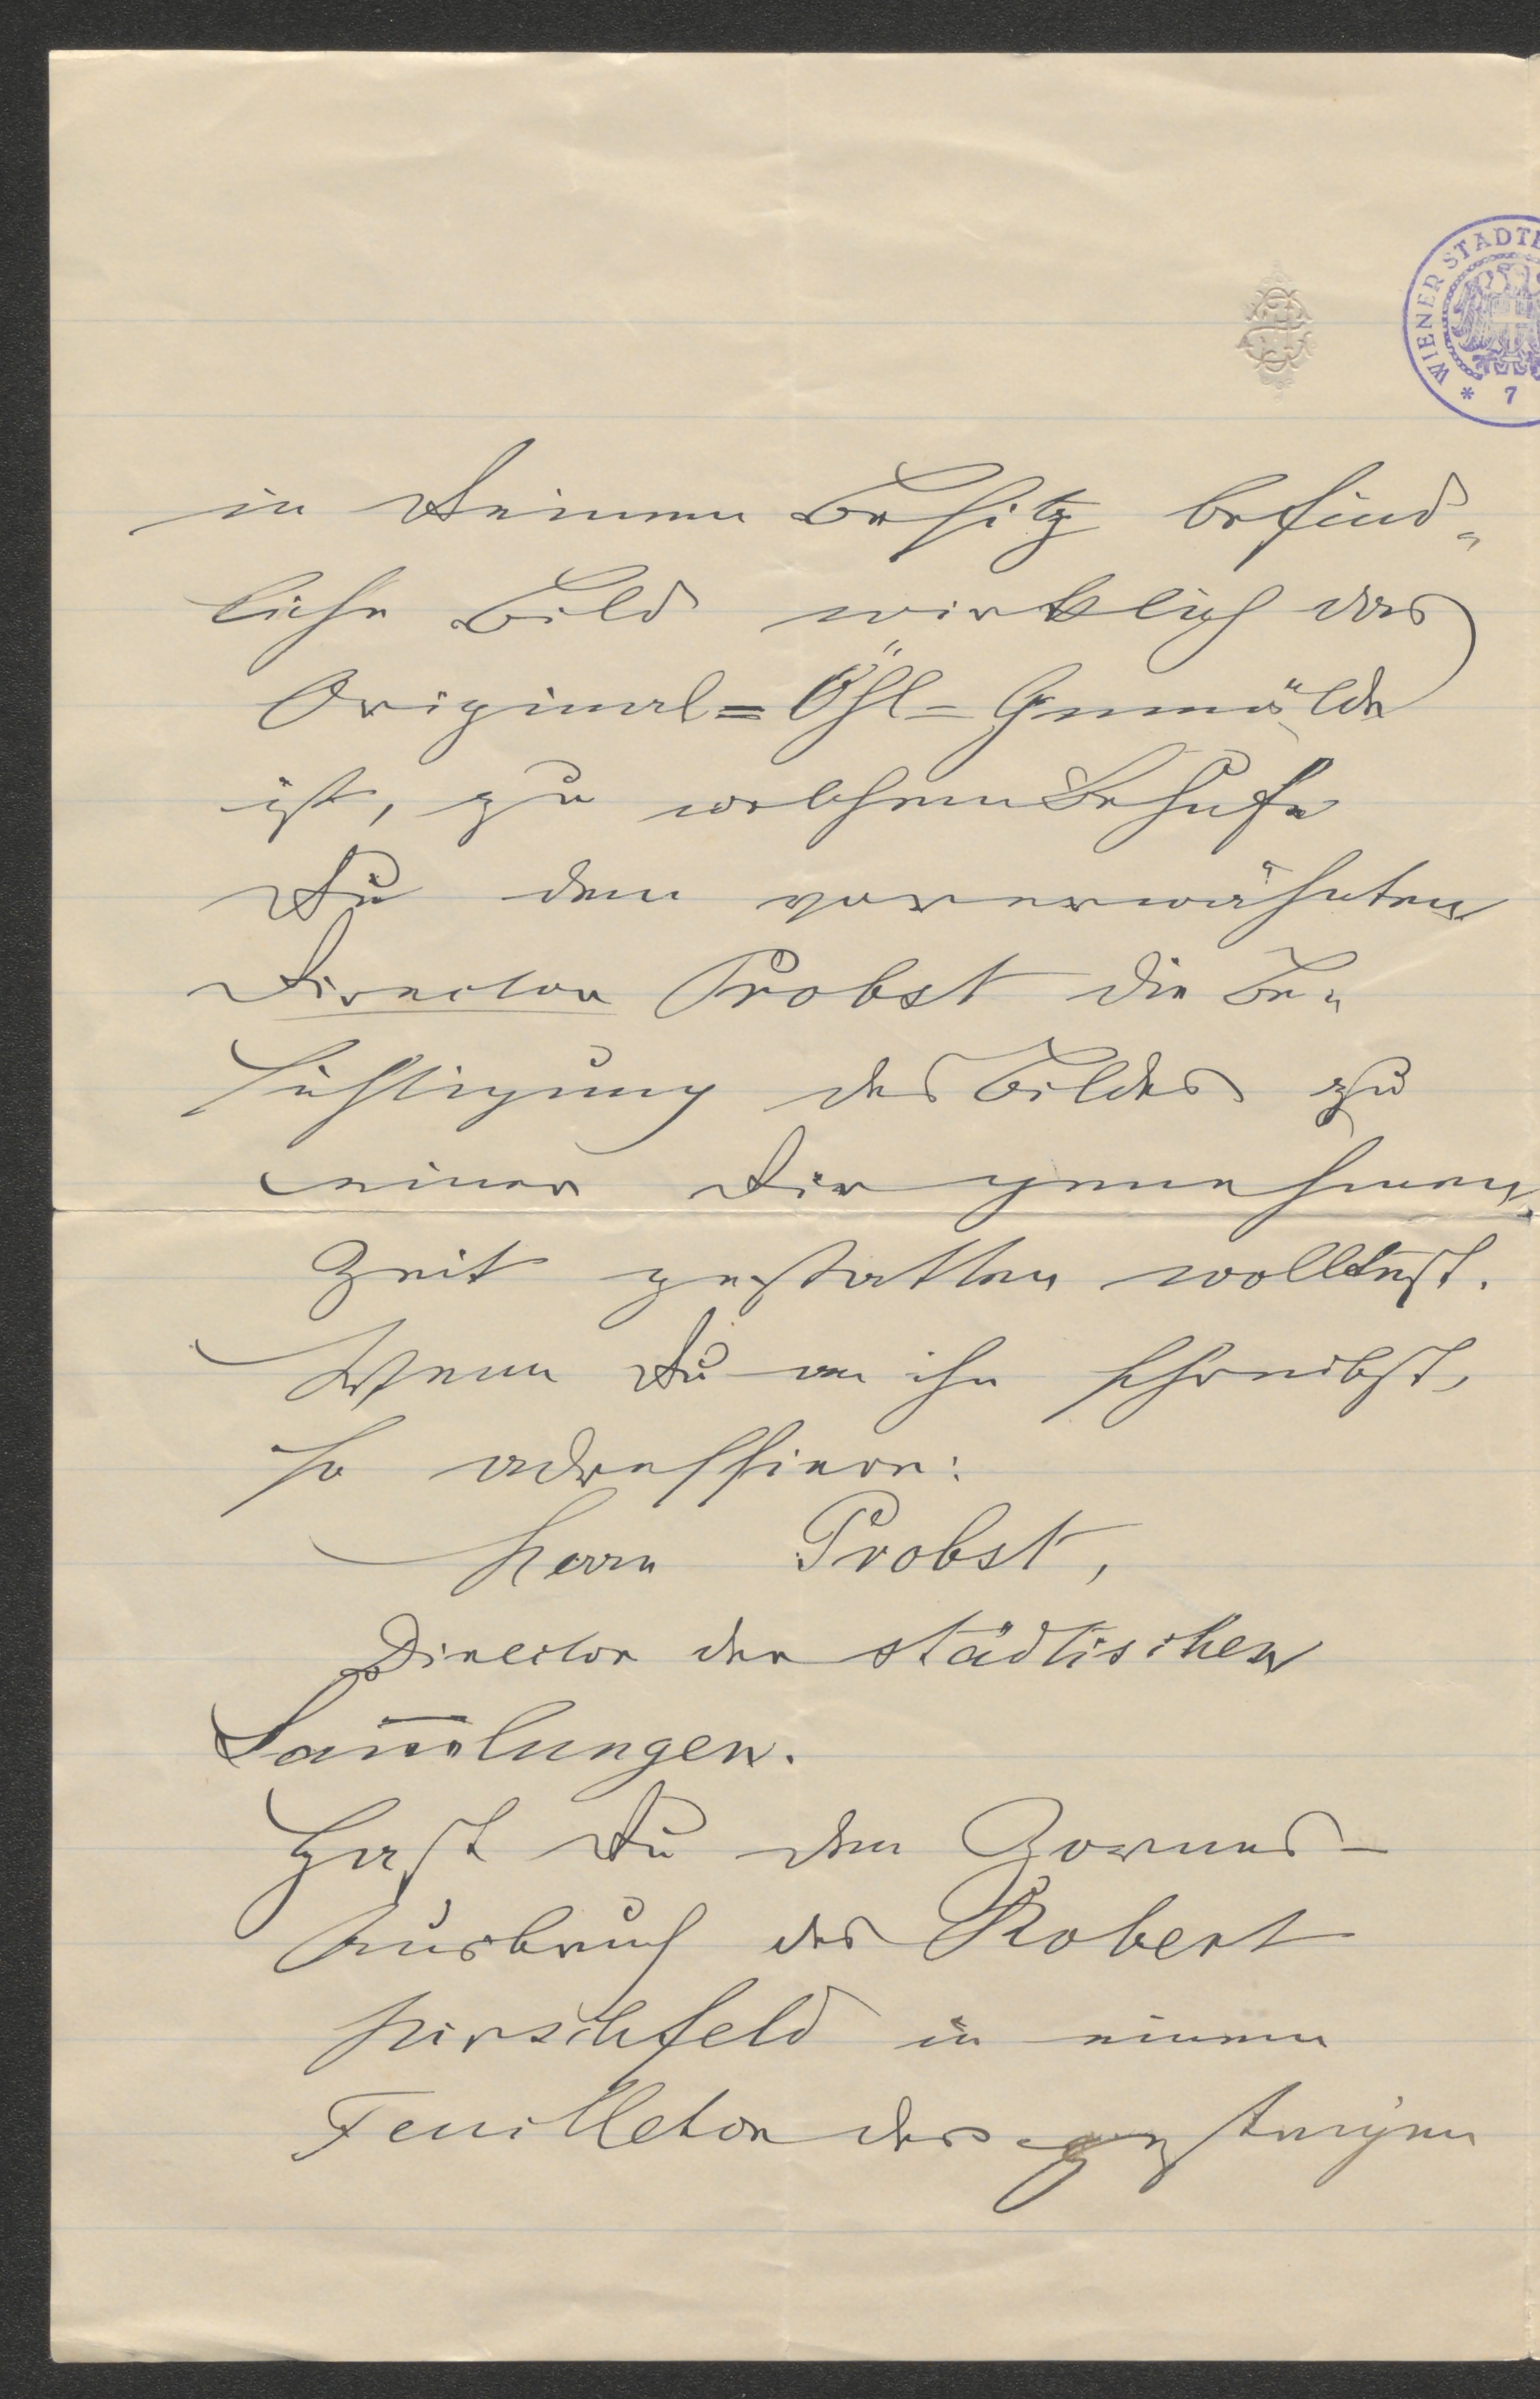 WIENER STADT
* 7
in Deinem Besitz befind-
liche Bild wirklich das
Original=Öhl=Gemälde
ist, zu welchem Behufe
Du dem vorerwähnten
Director Probst die Be-
sichtigung des Bildes zu
einer Dir genehmen
Zeit gestatten wolltest.
Wenn Du an ihn schreibst,
so adressiere:
Herrn Probst,
Director der städtischen
Sam̅lungen.
Hast Du den Zornes-
Ausbruch des Robert
Hirschfeld in einem
Feuilleton der gestrigen